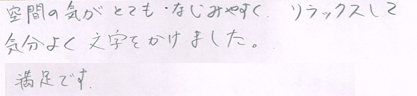 空間の気がとても・なじみやすく、リラックスして
気分よく文字をかけました。
満足です.